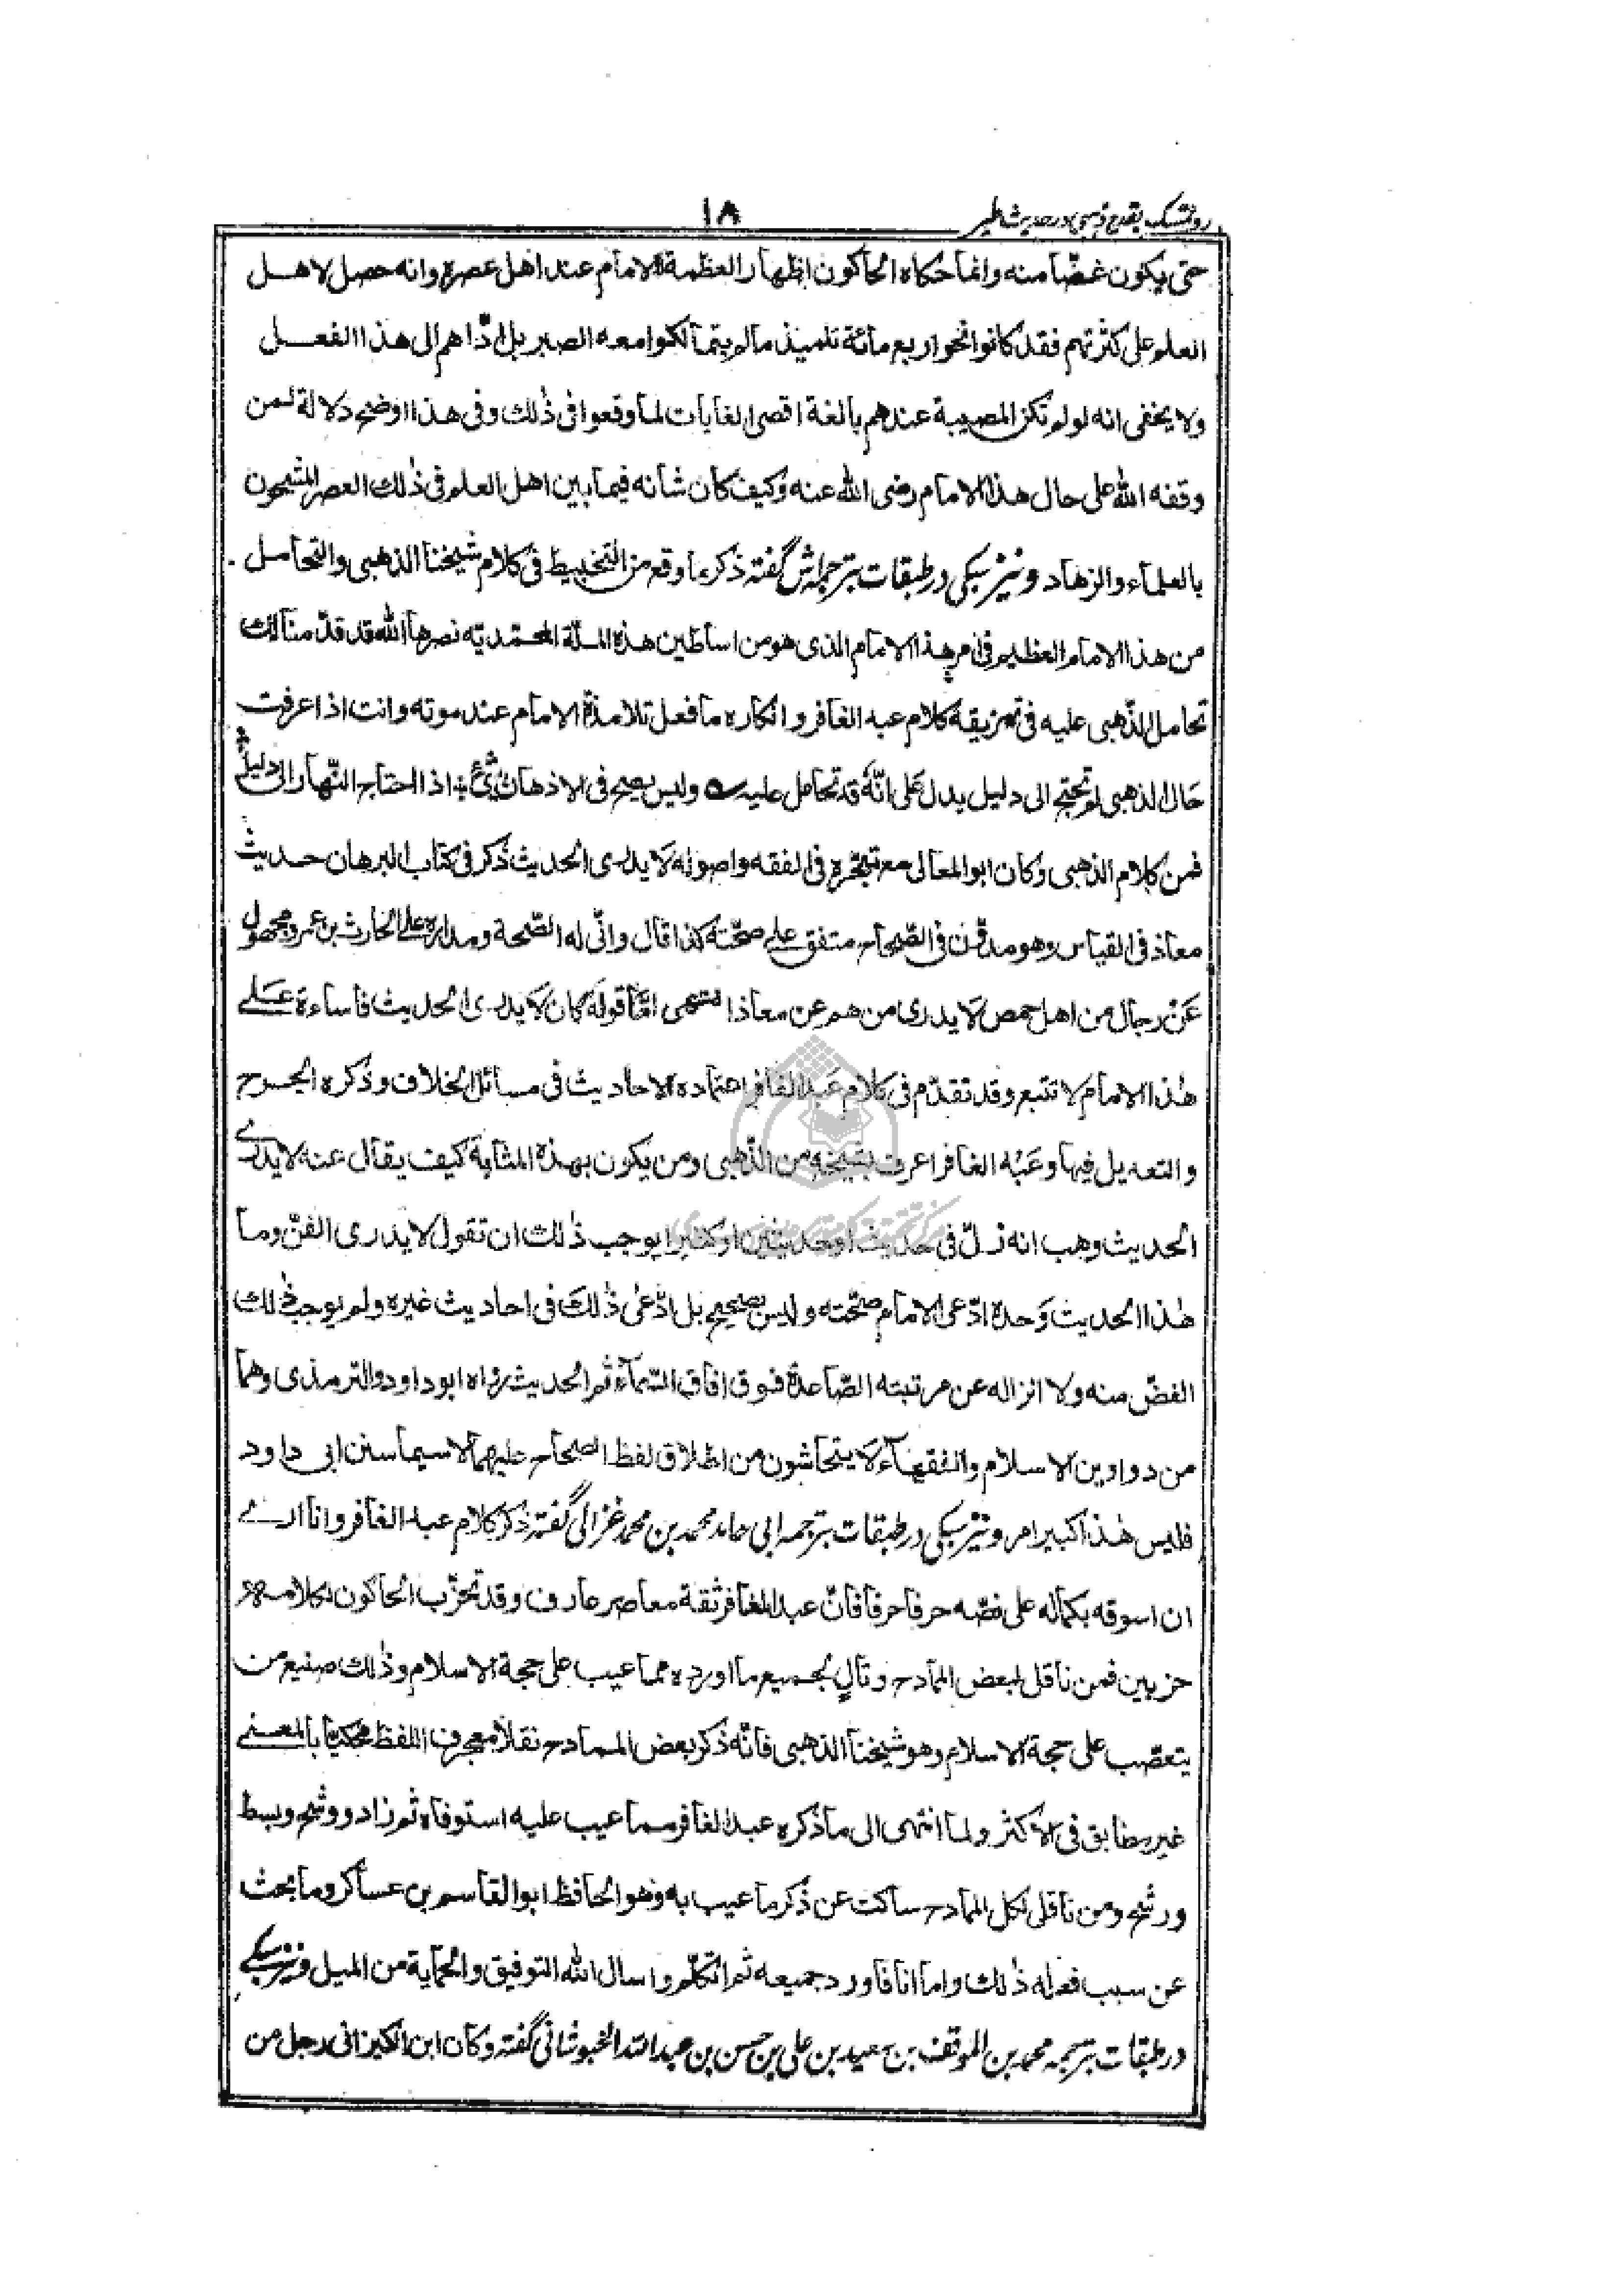 رد تمسک بقدح ذهبی در حدیث طیر
۱۸
حتی یکون غضّا منه وانما حکاه الحاکون اظهارا لعظمة الامام عند اهل عصره وانه حصل لاهل
العلم علی کثرتهم فقد کانوا نحوار بع مائة تلمیذ مالم یتمالکوا معه الصبر بل ادّاهم الی هذا الفعل
ولا یخفی انه لو لم تکن المصیبة عندهم بالغة اقصی الغایات لما وقعوا فی ذٰلك وفی هذا اوضح دلالة لمن
وقفه الله علی حال هذا الامام رضی الله عنه وکیف کان شانه فیما بین اهل العلم فی ذٰلك العصر المشحون
بالعلمآء والزهاد ونیز سبکی در طبقات بترجمه‌اش گفته ذکر ما وقع من التخبیط فی کلام شیخنا الذهبی والتحامل
من هذا الامام العظیم فی امر هذا الامام الذی هو من اساطین هذه الملّة المحمّدیّه نصرها الله قد قدّمنا لك
تحامل الذّهبی علیه فی تمزیقه کلام عبد الغافر وانکاره ما فعل تلامذة الامام عند موته وانت اذا عرفت
حال الذهبی لم تحتج الی دلیل یدل علی انّه قد تحامل علیه ولیس یصح فی الاذهان شئ اذا احتاج النّهار الی دلیل
فمن کلام الذهبی وکان ابو المعالی مع تبحّره فی الفقه واصوله لا یدری الحدیث ذکر فی کتاب البرهان حدیث
معاذ فی القیاس وهو مدوّن فی الصّحاح متفق علی صحّته کذا قال وانّی له الصّحة ومداره علی الحارث بن عمرو مجهول
عَنْ رجال من اهل حمص لا یدری من هم عن معاذ انتهی امّا قوله کان لا یدری الحدیث فاساءة علے
هٰذا الامام لا تتبع وقد تقدّم فی کلام عبد الغافر اعتماده الاحادیث فی مسائل الخلاف وذکره الجرح
والتعدیل فیها وعبد الغافر اعرف بشیخه من الذّهبی ومن یکون بهذه المثابة کیف یقال عنه لا یدرے
الحدیث وهب انه زلّ فی حدیث او حدیثین او کثیر لا یوجب ذٰلك ان تقول لا یدری الفنّ وما
هٰذا الحدیث وَحدة ادّعی الامام صحّته ولیس بصحیح بل ادّعٰی ذٰلك فی احادیث غیره ولم یوجب ذٰلك
الغضّ منه ولا انزاله عن مرتبته الصّاعدة فوق افاق السّمآء ثم الحدیث رواه ابو داود والترمذی وهما
من دواوین الاسلام والفقهآء لا یتحاشون من اطلاق لفظ الصحاح علیهما لا سیما سنن ابی داود
فلیس هٰذا کبیر امر ونیز سبکی در طبقات بترجمه ابی حامد محمد بن محمد غزالی گفته ذکر کلام عبد الغافر وانا ارے
ان اسوقه بکماله علی نصّه حرفا حرفا فانّ عبد الغافر ثقة معاصر عارف وقد تحزّب الحاکون لکلامه
حزبین فمن ناقل لبعض الممادح وتالٍ لجمیع ما اورده مما عیب علی حجة الاسلام وذٰلك صنیع من
یتعصّب علی حجة الاسلام وهو شیخنا الذهبی فانّه ذکر بعض الممادح نقلا معجرف اللفظ محکیّا بالمعنے
غیر مطابق فی الاکثر ولما انتهی الی ما ذکره عبد الغافر مما عیب علیه استوفاه ثم زاد ووشح وبسط
ورشح ومن ناقل لکل الممادح ساکت عن ذکر ما عیب به وهو الحافظ ابو القاسم بن عساکر وما بحث
عن سبب فعله ذٰلك واما انا فاورد جمیعه ثم اتکلّم واسال الله التوفیق والحمایة من المیل ونیز سبکے
در طبقات بترجمه محمد بن الموفق بن سعید بن علی بن حسن بن عبد الله الخبوشانی گفته وکان ابن الکیزانی رجل من